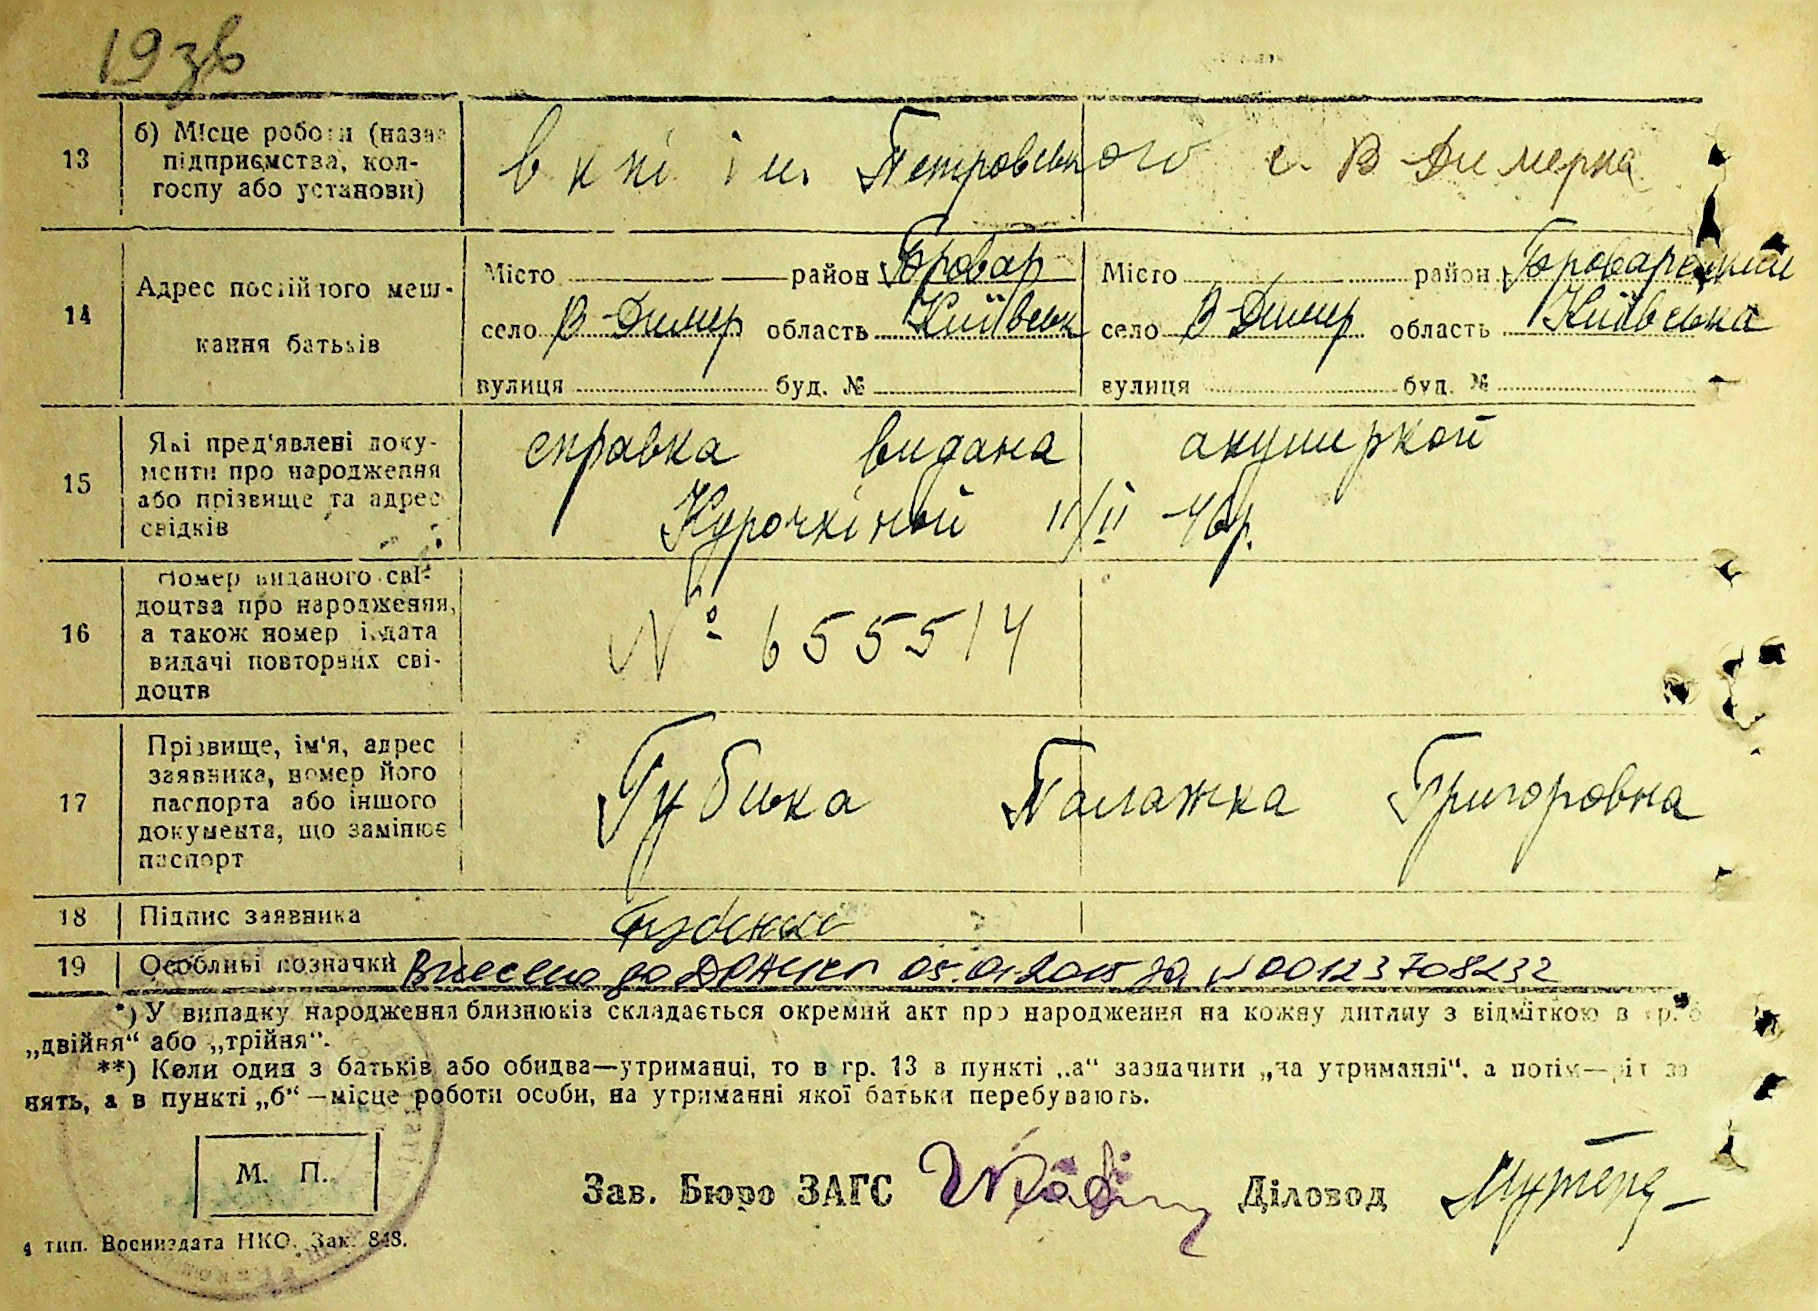 19 зв
13
б) Місце роботи (назва
підприємства, кол-
госпу або установи)
в к пі ім. Петровського с. В Димерка
14
Адрес постійного меш-
кання батьків
Місто район Бровар Місто район Броварський
село В Димер область Київськ село В Димер область Київська
вулиця буд. № вулиця буд. №
15
Які пред'явлені доку-
менти про народження
або прізвище та адрес
свідків
справка видана акушеркой
Курочкіной 11/II 46р.
16
Номер виданого сві-
доцтва про народження,
а також номер і дата
видачі повторних сві-
доцтв
№ 655514
17
Прізвище, ім'я, адрес
заявника, номер його
паспорта або іншого
документа, що замінює
паспорт
Губська Палажка Григоровна
18 Підпис заявника
19 Особливі позначки Внесено до ДРАЦСГ 05.01.2015 за №00123708232
*) У випадку народження близнюків складається окремий акт про народження на кожну дитину з відміткою в гр. 6
„двійня“ або „трійня“.
**) Коли один з батьків або обидва—утриманці, то в гр. 13 в пункті „а“ зазначити „на утриманні“, а потім—рід за
нять, а в пункті „б“ —місце роботи особи, на утриманні якої батьки перебувають.
М. П.
Зав. Бюро ЗАГС Діловод
4 тип. Воениздата НКО. Зак. 848.